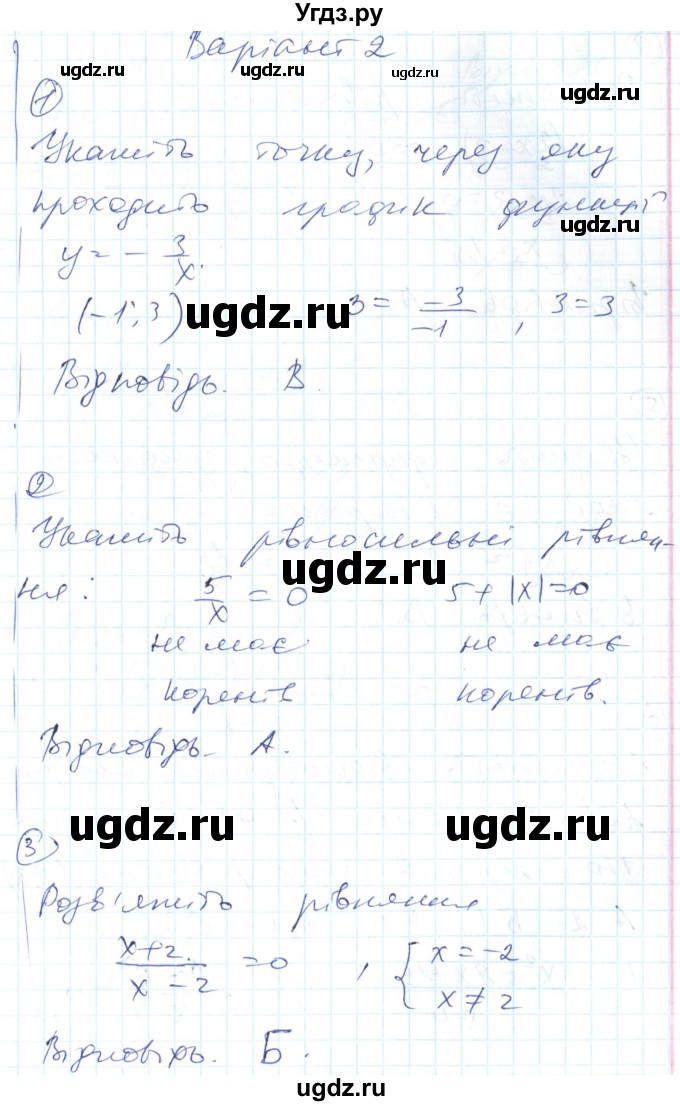 Угдз.ру
Варіант 2
ugdz.ru ugdz.ru ugdz.ru
①
Укажіть точку, через яку
проходить графік функції
ugdz.ru
y = - 3/x.
(-1; 3) ugdz.ru 3 = -3/-1, 3 = 3
Відповідь. В.
②
Укажіть рівносильні рівнян-
ugdz.ru ugdz.ru
ня: 5/x = 0 5 + |x| = 0
не має не має
коренів коренів.
Відповідь. А.
ugdz.ru ugdz.ru
③
Розв'яжіть рівняння
x+2/x-2 = 0, { x = -2
x ≠ 2
ugdz.ru ugdz.ru ugdz.ru
Відповідь. Б.
ugdz.ru